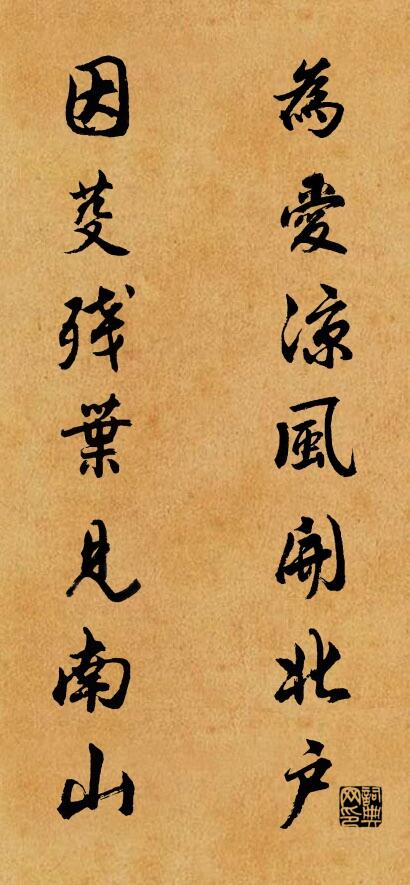 為愛涼風開北户
因芟殘葉見南山
詞典网印